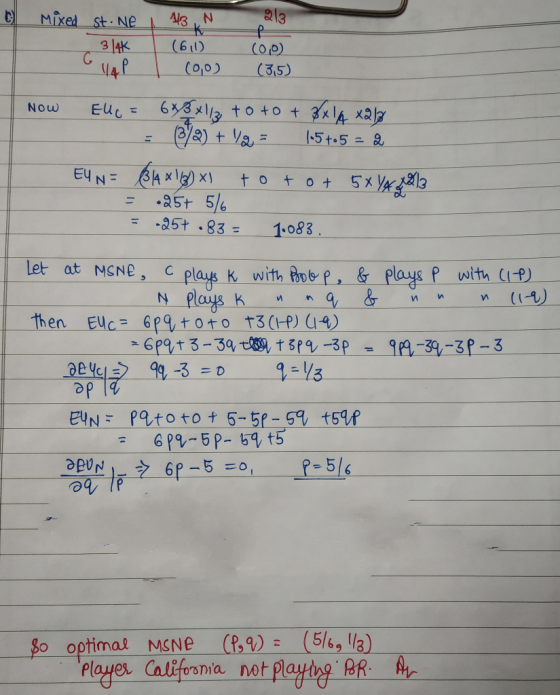 c) Mixed st. NE 1/3 N 2/3
K P
3/4 K (6,1) (0,0)
C
1/4 P (0,0) (3,5)
Now EUc = 6 x 3/4 x 1/3 + 0 + 0 + 3 x 1/4 x 2/3
= (3/2) + 1/2 = 1.5 + .5 = 2
EUN = (3/4 x 1/3) x 1 + 0 + 0 + 5 x 1/4 x 2/3
= .25 + 5/6
= .25 + .83 = 1.083.
Let at MSNE, C plays K with Prob p, & plays P with (1-P)
N plays K " " q & " " " (1-q)
then EUc = 6pq + 0 + 0 + 3(1-P)(1-q)
= 6pq + 3 - 3q + 3pq - 3p = 9pq - 3q - 3p - 3
∂EUc/∂p |q ⇒ 9q - 3 = 0 q = 1/3
EUN = pq + 0 + 0 + 5 - 5p - 5q + 5qp
= 6pq - 5p - 5q + 5
∂EUN/∂q |p ⇒ 6p - 5 = 0, p = 5/6
So optimal MSNE (P,q) = (5/6, 1/3)
Player California not playing BR.